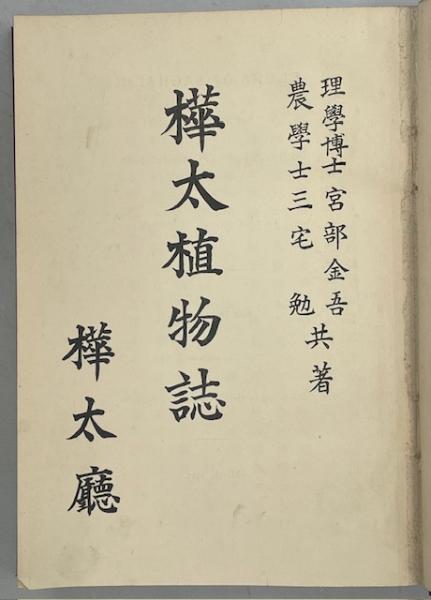 理學博士宮部金吾
農學士三宅勉
共著
樺太植物誌
樺太廳